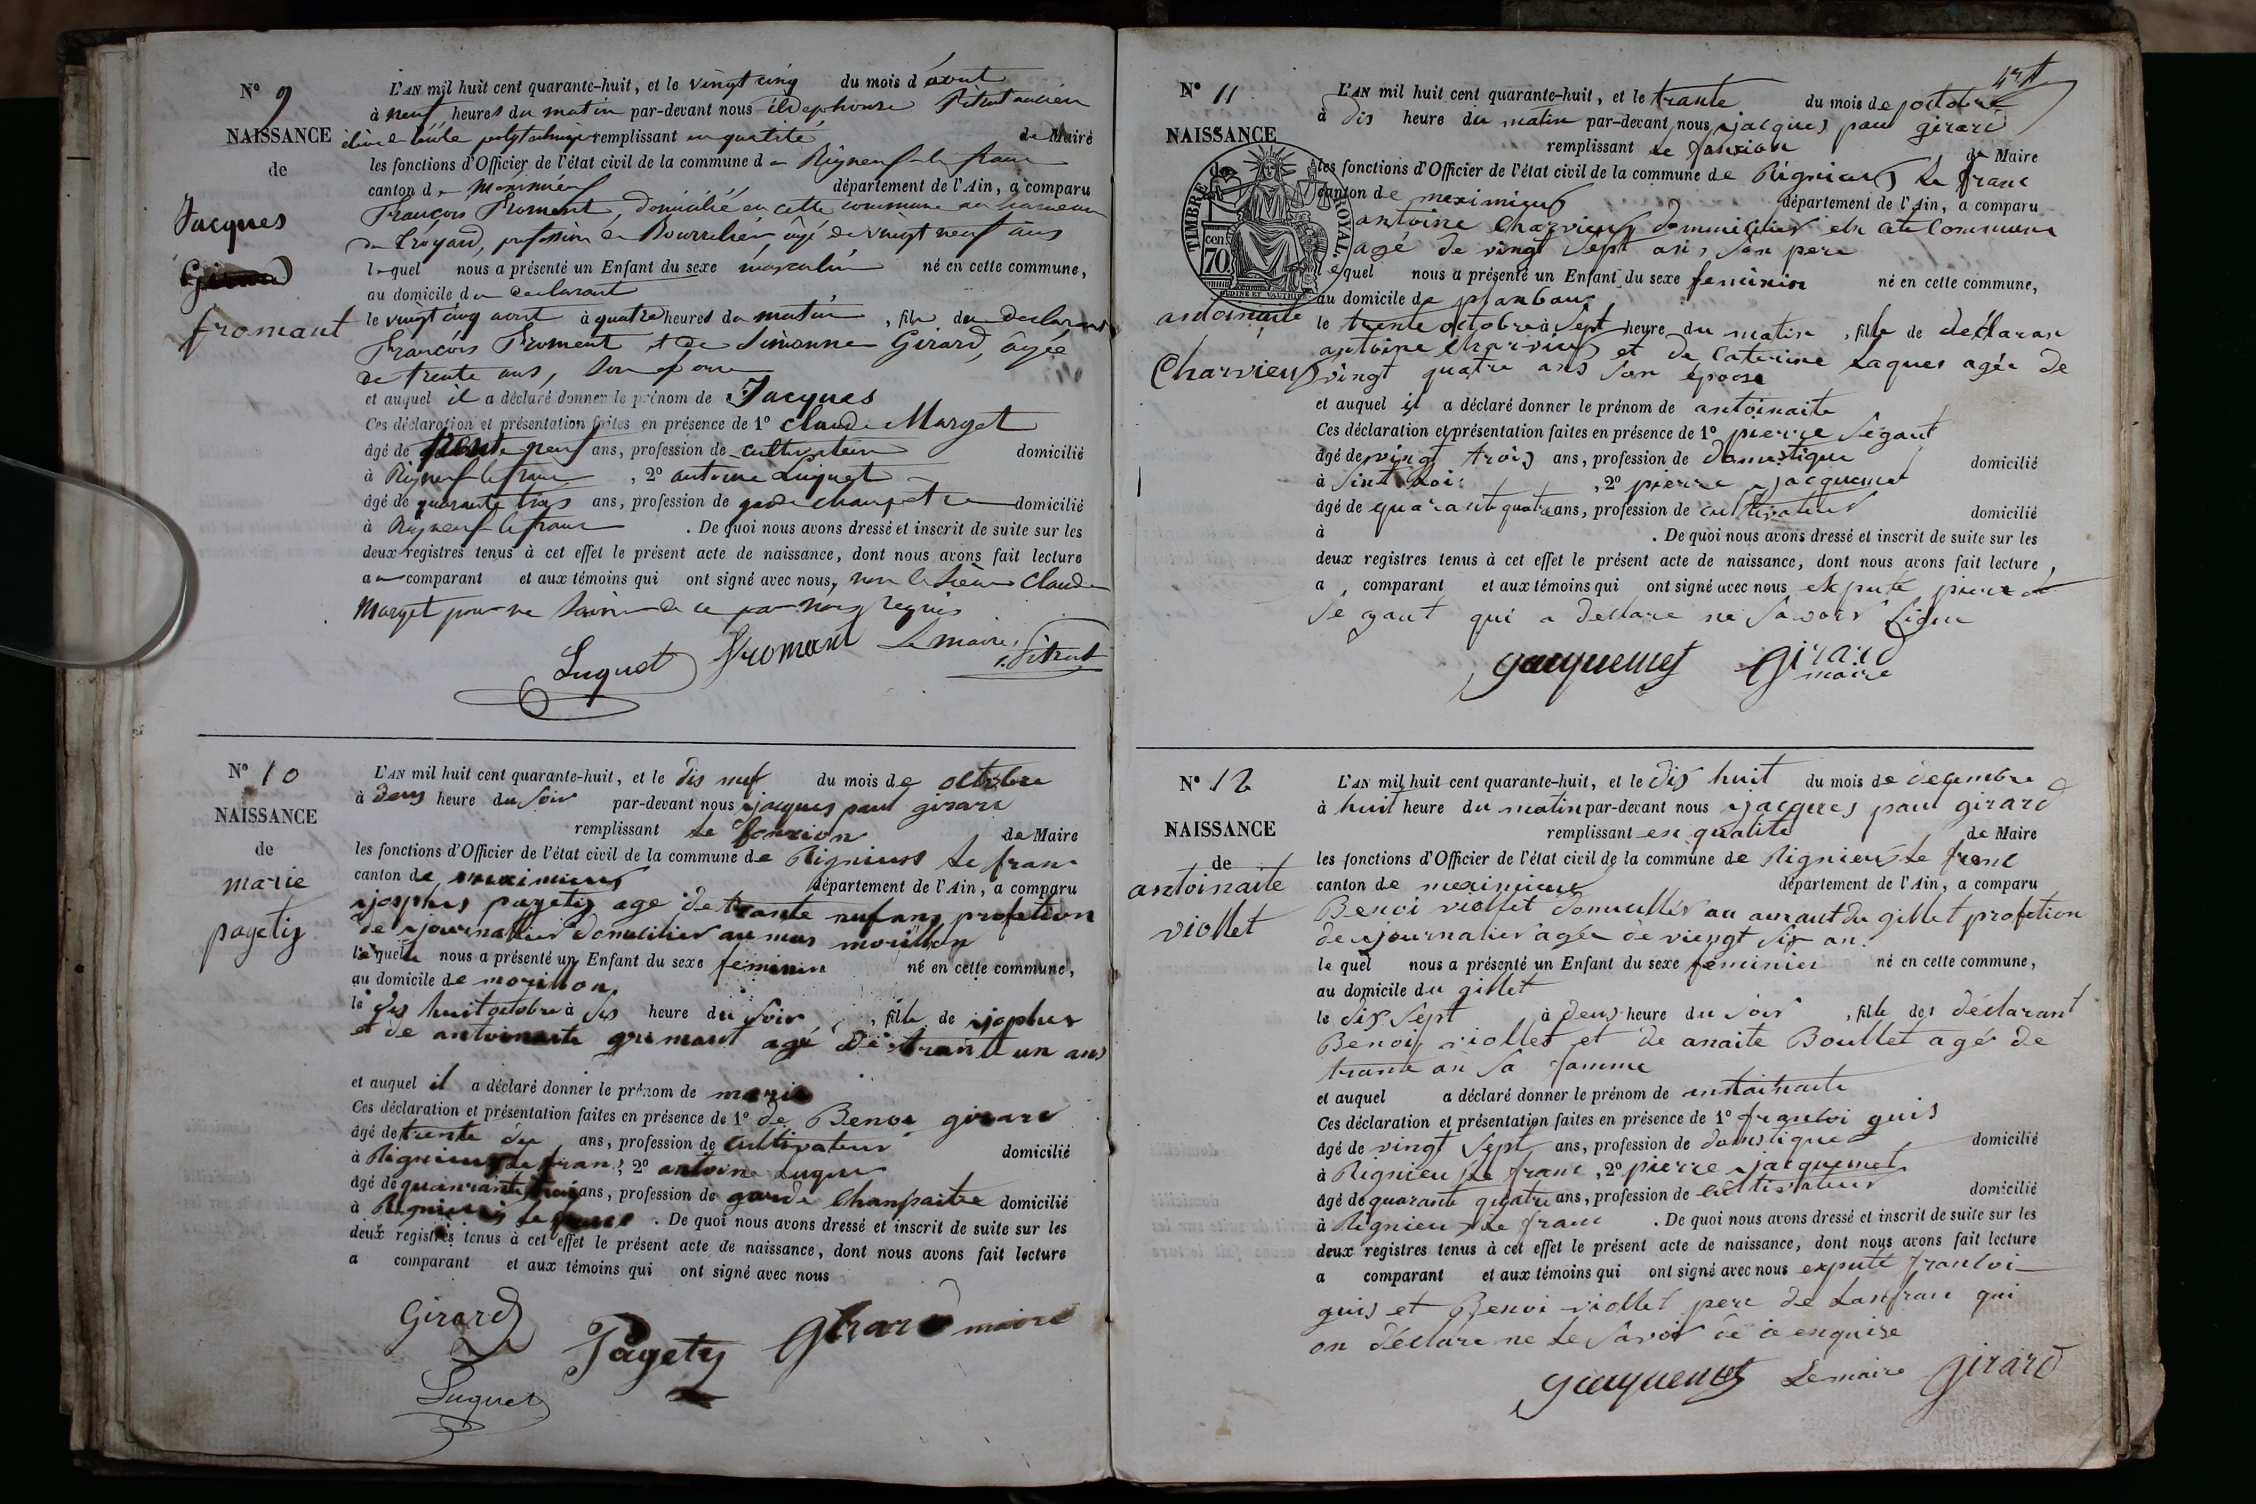 N° 9
NAISSANCE
de
Jacques
Girard
fromant
L'AN mil huit cent quarante-huit, et le vingt cinq du mois d'août
à neuf heures du matin par-devant nous ildephonse Pitrat ancien
élève de l'école polytechnique remplissant en qualité de Maire
les fonctions d'Officier de l'état civil de la commune de Rigneux le franc
canton de Meximieux département de l'Ain, a comparu
François Froment, domicilié en cette commune au hameau
de Croyard, profession de Bourrelier âgé de vingt neuf ans
lequel nous a présenté un Enfant du sexe masculin né en cette commune,
au domicile du declarant
le vingt cinq aout à quatre heures du matin, fils du declarant
François Froment et de Simonne Girard, âgée
de trente ans, son épouse
et auquel il a déclaré donner le prénom de Jacques
Ces déclaration et présentation faites en présence de 1° Claude Marget
âgé de neuf ans, profession de cultivateur domicilié
à Rigneux le franc, 2° antoine Luquet
âgé de quarante trois ans, profession de garde champêtre domicilié
à Rigneux le franc. De quoi nous avons dressé et inscrit de suite sur les
deux registres tenus à cet effet le présent acte de naissance, dont nous avons fait lecture
au comparant et aux témoins qui ont signé avec nous, non le sieur Claude
Marget pour ne savoir de ce par nous requis
Luquet Fromant Le maire, Pitrat
N° 10
NAISSANCE
de
marie
pagetij
L'AN mil huit cent quarante-huit, et le dis nuf du mois de octobre
à deus heure du Soir par-devant nous jacques paul girard
remplissant Le fonxion de Maire
les fonctions d'Officier de l'état civil de la commune de Rignieus Le franc
canton de meximieus département de l'Ain, a comparu
josphus pagetij age de trante nuf ans profetion
de journallier domicilier au mas morillon
lequelle nous a présenté un Enfant du sexe feminin né en cette commune,
au domicile de morillon
le dis huit octobre à sis heure du soir, fille de joplus
et de antoinaite grimaut agé De trante un ans
et auquel il a déclaré donner le prénom de marie
Ces déclaration et présentation faites en présence de 1° de Benoi girard
âgé de trente ans, profession de cultivateur domicilié
à Rignieus Le fran, 2° antoine Luque
âgé de quanrante trois ans, profession de garde Chanpaitre domicilié
à Rignieus Le franc. De quoi nous avons dressé et inscrit de suite sur les
deux registres tenus à cet effet le présent acte de naissance, dont nous avons fait lecture
a comparant et aux témoins qui ont signé avec nous
Girard Pagety girard maire
Luquet
N° 11
NAISSANCE
de
TIMBRE ROYAL
70 cen.
antoinaite
Charvieus
L'AN mil huit cent quarante-huit, et le trante du mois de octobre
à dis heure du matin par-devant nous jacques paul girard
remplissant Le fonxion de Maire
les fonctions d'Officier de l'état civil de la commune de Rignieus Le franc
canton de meximieus département de l'Ain, a comparu
antoine Charvieus dommicilier en cete Commune
age de vingt sept ans, son pere
lequel nous a présenté un Enfant du sexe feminin né en cette commune,
au domicile de
le trente octobre à sept heure du matin, fille de déclaran
antoine Charvieus et de Caterine Laques agée de
vingt quatre ans son épouse
et auquel il a déclaré donner le prénom de antoinaite
Ces déclaration et présentation faites en présence de 1° pierre Segaut
âgé de vingt trois ans, profession de domestique domicilié
à, 2° pierre jacquemet
âgé de quarante quatre ans, profession de cultivateur domicilié
à. De quoi nous avons dressé et inscrit de suite sur les
deux registres tenus à cet effet le présent acte de naissance, dont nous avons fait lecture
a comparant et aux témoins qui ont signé avec nous ekpute pierre
Segaut qui a declare ne savoir signe
Jacquemet Girard
maire
N° 12
NAISSANCE
de
antoinaite
viollet
L'AN mil huit cent quarante-huit, et le dis huit du mois de decembre
à huit heure du matin par-devant nous jacques paul girard
remplissant en qualité de Maire
les fonctions d'Officier de l'état civil de la commune de Rignieus Le franc
canton de meximieus département de l'Ain, a comparu
Benoi viollet domicillier au amaut du gillet profetion
de journalier agée de viengt six an.
le quel nous a présenté un Enfant du sexe feminier né en cette commune,
au domicile du gillet
le dis sept à deus heure du soir, fille des déclarant
Benoi viollet et de anaite Boullet agé de
trante an sa famme
et auquel a déclaré donner le prénom de antoinaite
Ces déclaration et présentation faites en présence de 1° franloi guis
âgé de vingt sept ans, profession de domestique domicilié
à Rignieu Le franc, 2° pierre jacquemet
âgé de quarante quatre ans, profession de cultivateur domicilié
à Rignieu Le franc. De quoi nous avons dressé et inscrit de suite sur les
deux registres tenus à cet effet le présent acte de naissance, dont nous avons fait lecture
a comparant et aux témoins qui ont signé avec nous expute franloi
guis et Benoi viollet pere de Lanfran qui
on déclare ne Le Savoir de ce enquise
Jacquemet Le maire Girard